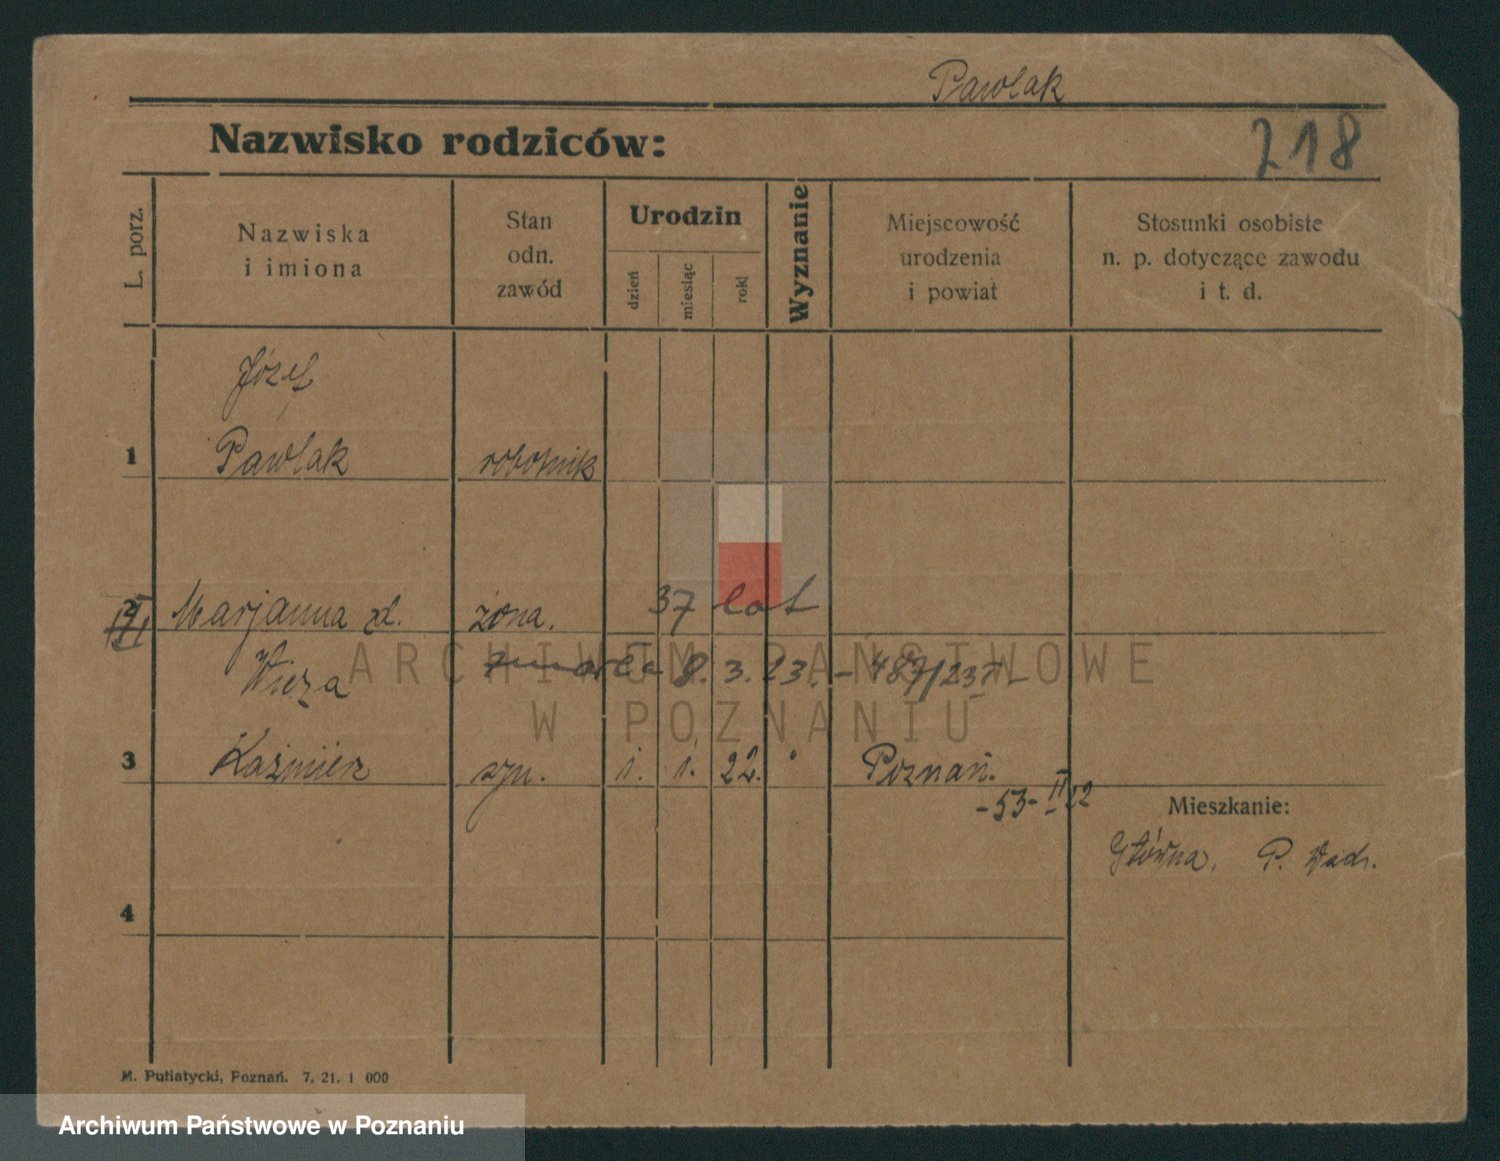 Pawlak
Nazwisko rodziców:
218
L. porz.
Nazwiska
i imiona
Stan
odn.
zawód
Urodzin
dzień
miesiąc
rok
Wyznanie
Miejscowość
urodzenia
i powiat
Stosunki osobiste
n. p. dotyczące zawodu
i t. d.
Józef
1 Pawlak robotnik
2 Marjanna z d. żona. 37 lat
Wieza zmarła 8. 3. 23. - 487/23 II -
ARCHIWUM PAŃSTWOWE
W POZNANIU
3 Kaźmierz syn. 1. 1. 22. " Poznań.
-53- II 22
Mieszkanie:
Główna, P.
4
M. Putiatycki, Poznań. 7. 21. 1 000
Archiwum Państwowe w Poznaniu